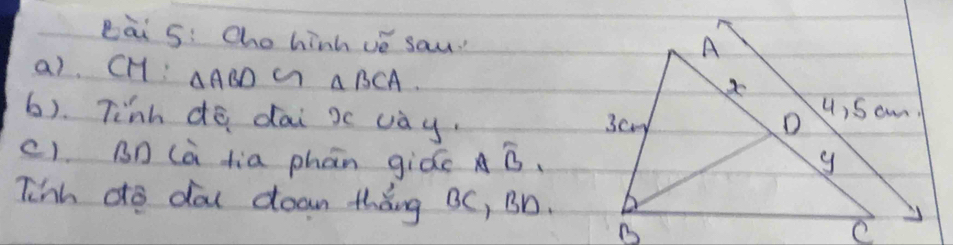 Bài 5: Cho hình vẽ sau:
a). CM: ΔABD ∽ ΔBCA.
b). Tính độ dài x và y.
c). BD là tia phân giác A B̂.
Tính độ dài đoạn thẳng BC, BD.
A
x
4,5 cm.
3cm
D
y
B
C